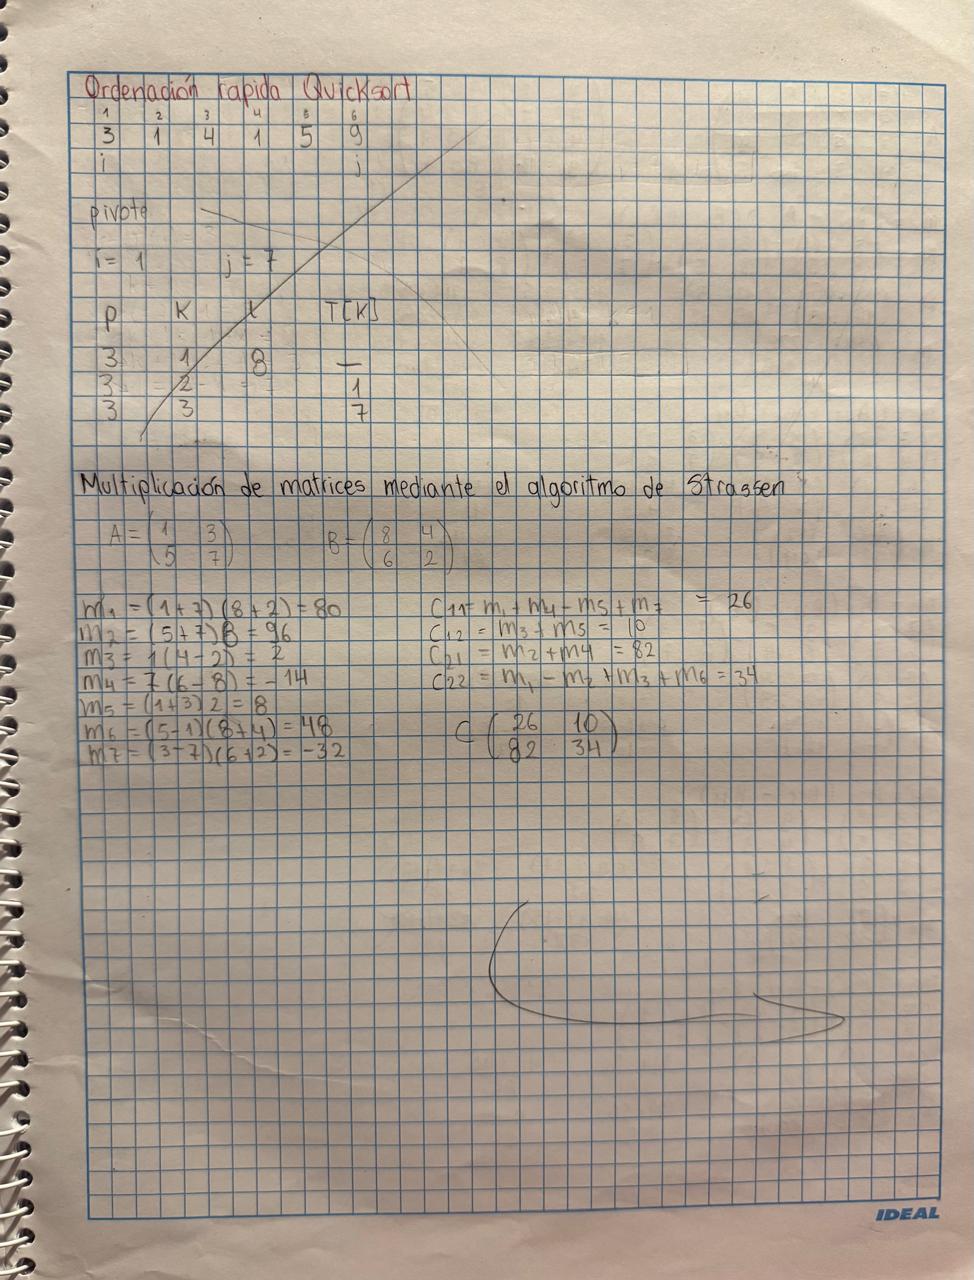 Ordenación rapida Quicksort
1 2 3 4 5 6
3 1 4 1 5 9
i j
pivote
i = 1 j = 7
P K l T[K]
3 1 8 —
3 2 1
3 3 7
Multiplicación de matrices mediante el algoritmo de Strassen
A = (1 3
5 7)
B = (8 4
6 2)
m1 = (1+7)(8+2) = 80
m2 = (5+7)8 = 96
m3 = 1(4-2) = 2
m4 = 7(6-8) = -14
m5 = (1+3)2 = 8
m6 = (5-1)(8+4) = 48
m7 = (3-7)(6+2) = -32
C11 = m1 + m4 - m5 + m7 = 26
C12 = m3 + m5 = 10
C21 = m2 + m4 = 82
C22 = m1 - m2 + m3 + m6 = 34
C (26 10
82 34)
IDEAL